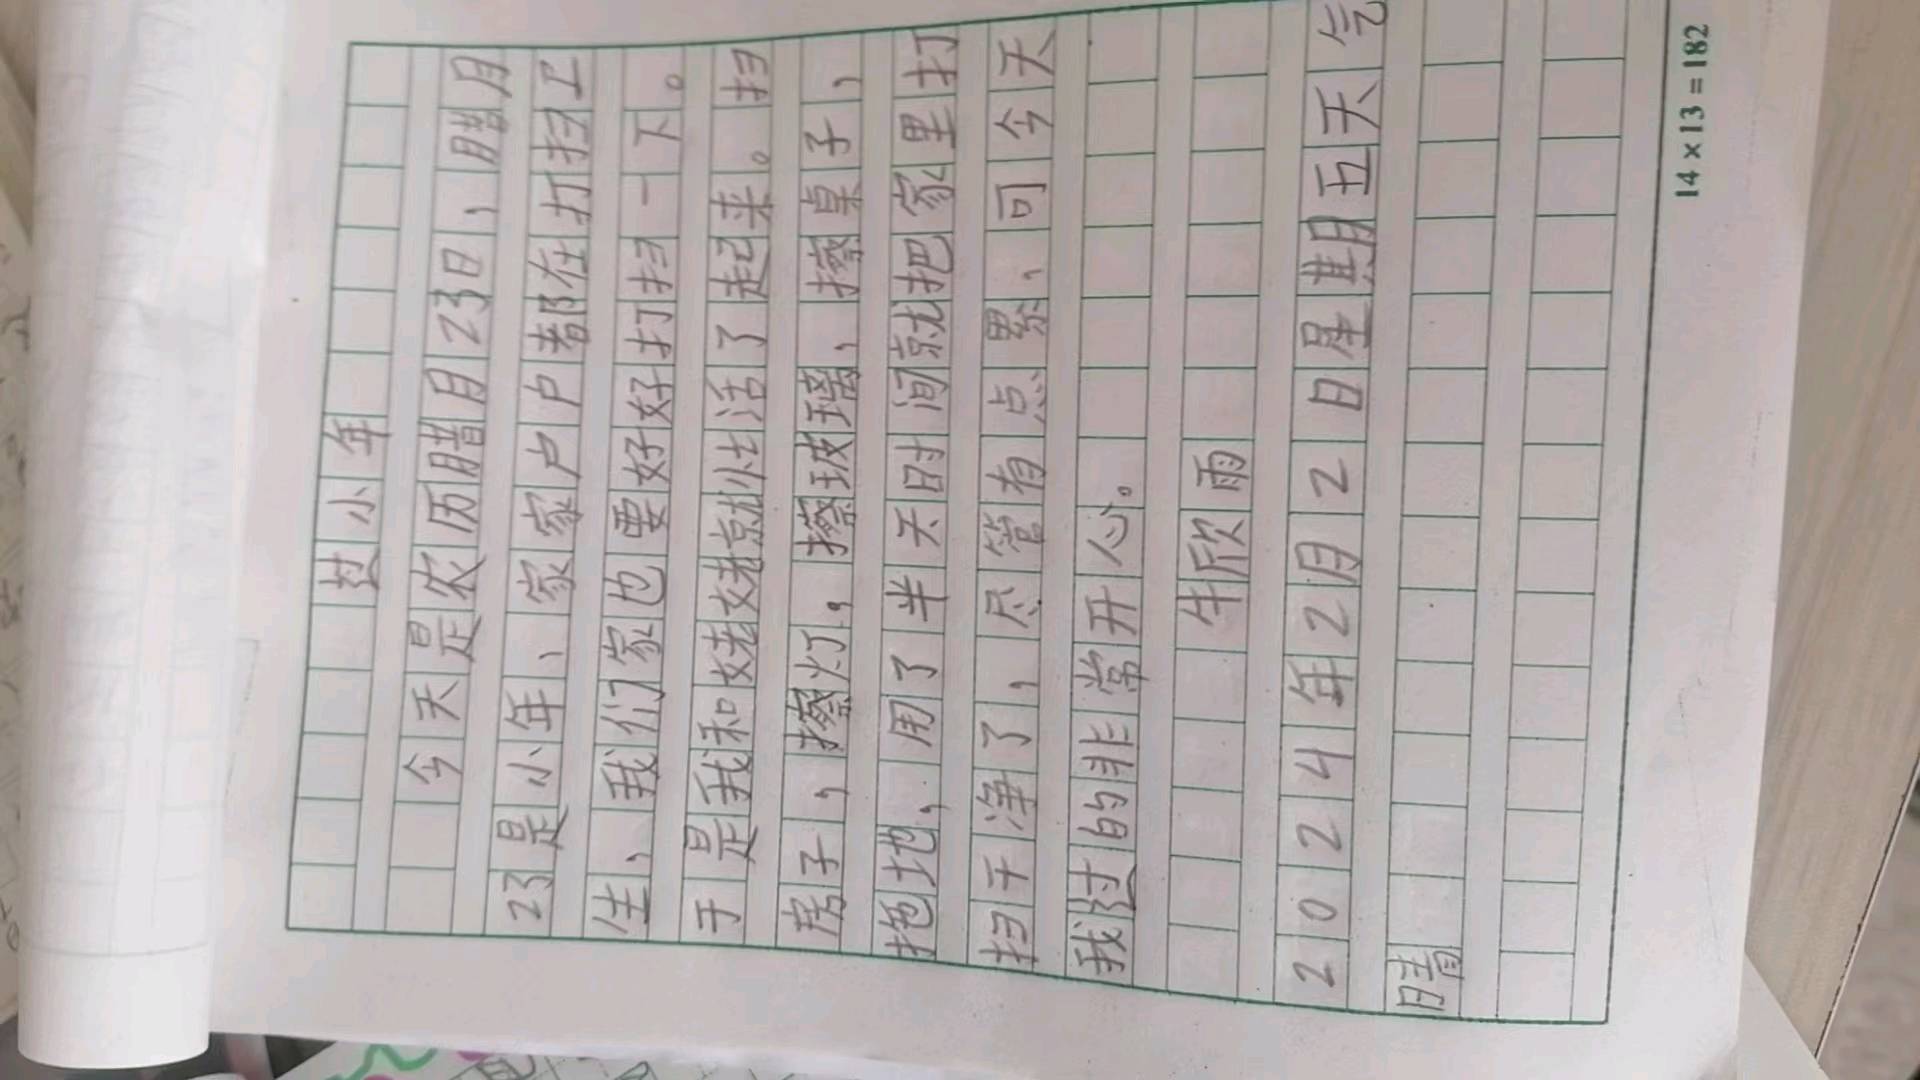 过小年
今天是农历腊月23日，腊月
23是小年、家家户户都在打扫卫
生、我们家也要好好打扫一下。
于是我和姥姥就忙活了起来。扫
房子，擦灯，擦玻璃，擦桌子，
拖地，用了半天时间就把家里打
扫干净了，尽管有点累、可今天
我过的非常开心。
牛欣雨
2024年2月2日星期五天气
晴
14×13=182